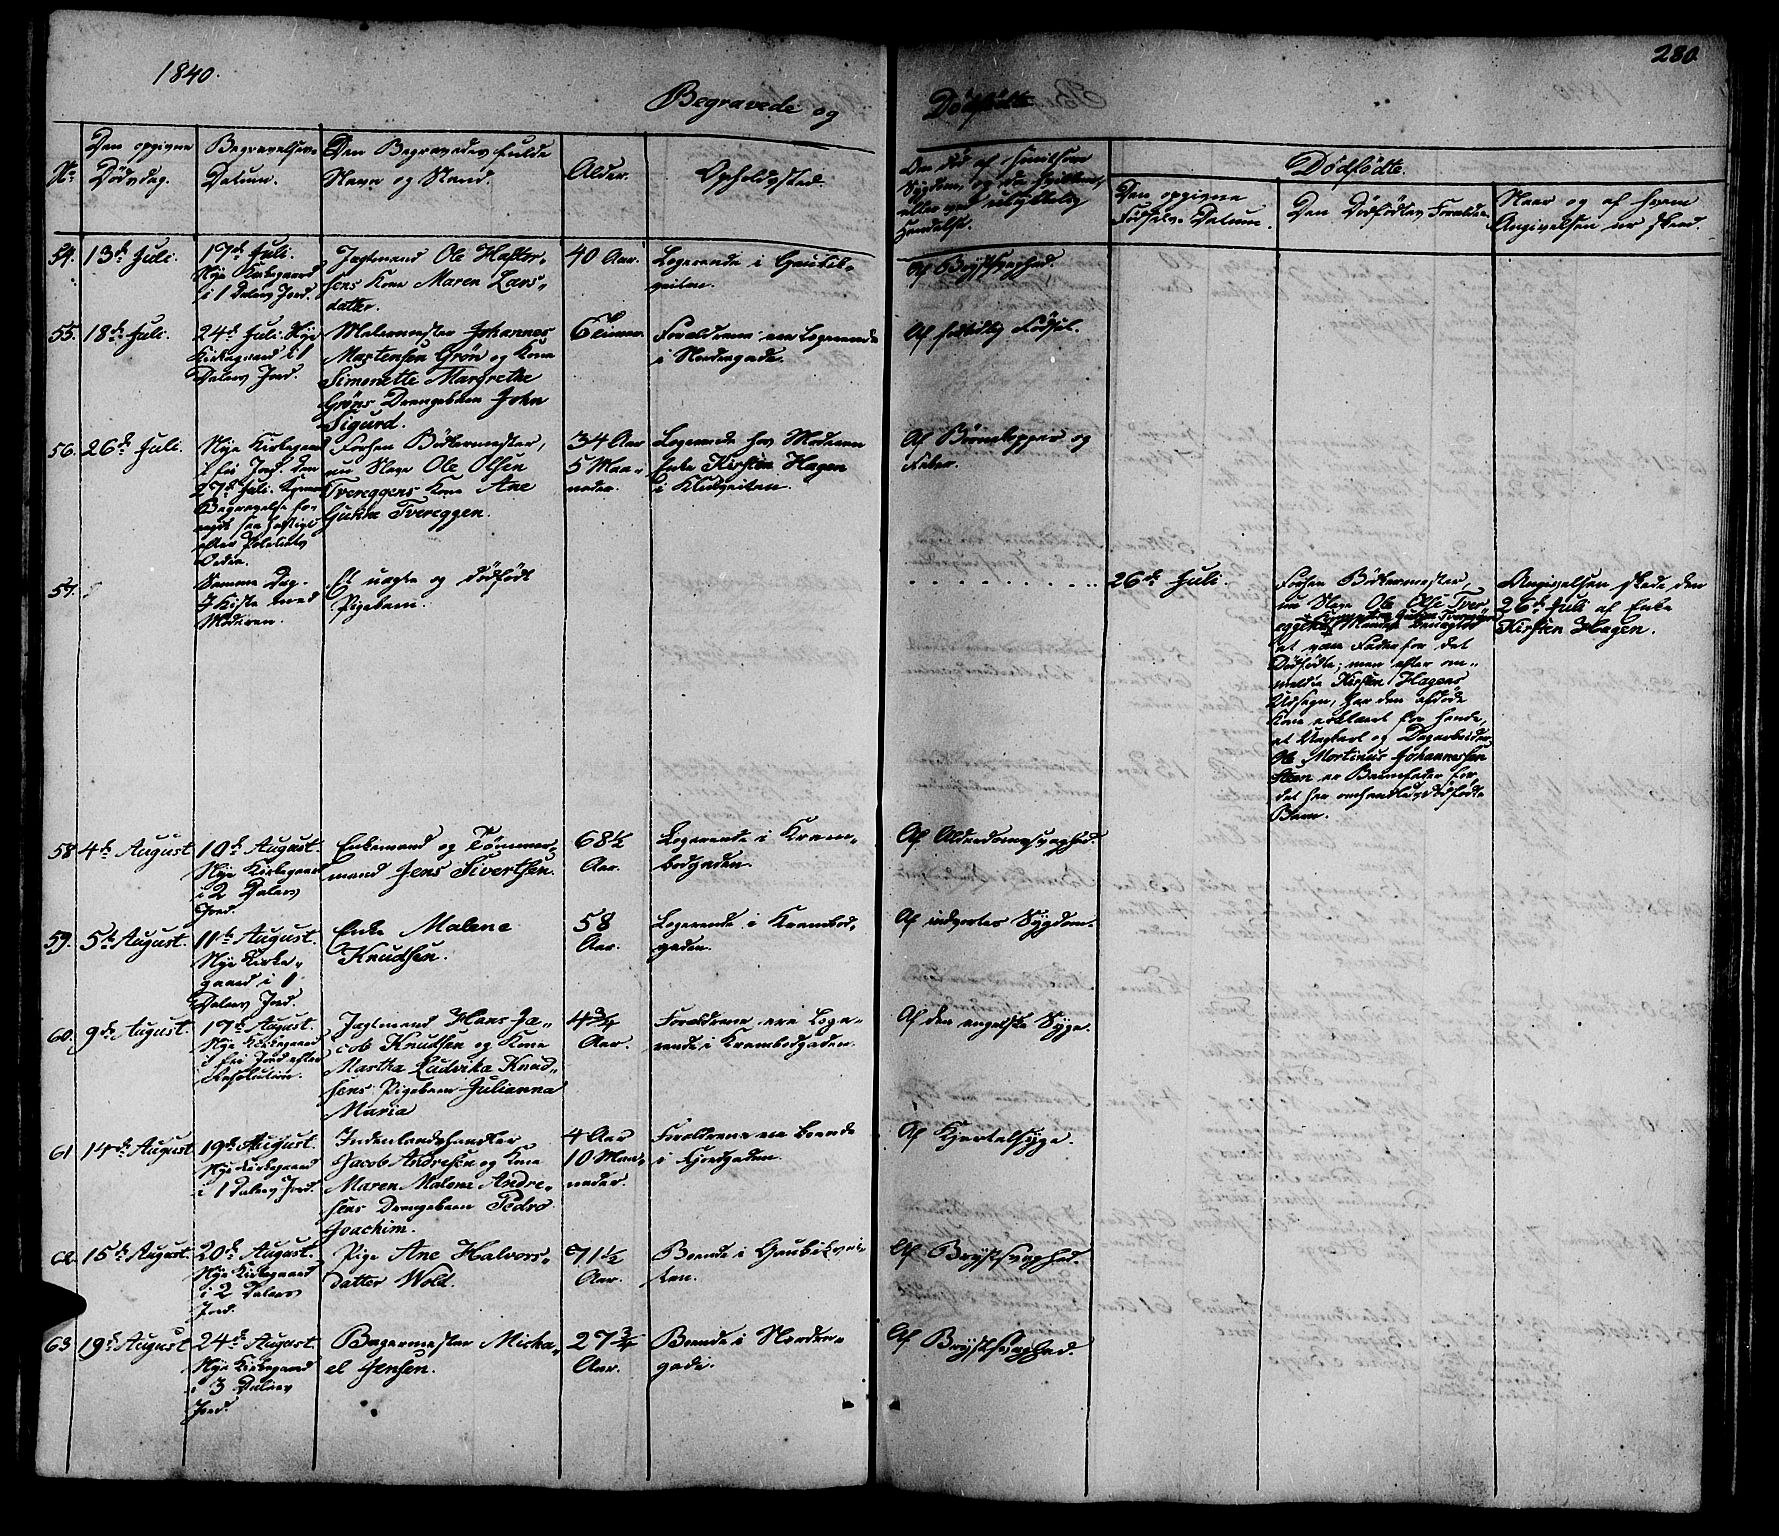 1840.
280.
Begravede og
Dødfødte
No
Den opgivne
Dødsdag.
Begravelses-
Datum.
Den Begravedes fulde
Navn og Stand.
Alder.
Opholdssted.
Død af smitsom
Sygdom,
eller ved ulykkelig
Hændelse.
Dødfødte.
Den opgivne
Fødsels-Datum.
Den Dødfødtes Forældre.
Naar og af hvem
Angivelsen er skeed.
54. 13de Juli.
17de Juli.
Nye Kirkegaard
i 1 Dalers Jord.
Jagtmand Ole
sens Kone Maren Lars-
datter.
40 Aar.
Logerende i
veiten.
Af Brystsvaghed.
55. 18de Juli.
24de Juli. Nye
Kirkegaard i 1
Dalers Jord.
Malermester Johannes
Mortensen Grøn og Kone
Simonette Margrethe
Grøns Drengebarn John
Sigurd.
6 Timer.
Forældrene ere Logerende
i Nordregade.
Af Fødsel.
56. 26de Juli.
Nye Kirkegaard
i fri Jord. den
27de Juli.
Begravelse
efter Politiets
Ordre.
Forhen Bødkermester,
nu Slave Ole Olsen
Tvereggens Kone Ane
Gurine Tvereggen.
34 Aar
5 Maa-
neder.
Logerende hos Moderen
Enke Kirsten Hagen
i Klubveiten.
Af Børnekopper og
Feber.
57.
Samme Dag.
I Kiste med
Moderen.
Et uægte og dødfødt
Pigebarn.
26de Juli.
Forhen Bødkermester,
nu Slave Ole Olse Tver-
eggen
at være Fader for det
Dødfødte; men efter om-
meldte Kirsten Hagens
Udsagn, har den afdøde
Kone erklæret for hende,
at Ungkarl og Dagarbeider
Ole Martinus Johannessen
Steen er Barnefader for
det her omhandlede dødfødte
Barn.
Angivelsen skede den
26de Juli af Enke
Kirsten Hagen.
58 4de August
10de August.
Nye Kirkegaard
i 2 Dalers
Jord.
Enkemand og Tømmer-
mand Jens Sivertsen.
68½
Aar.
Logerende i Kram-
bodgaden.
Af Alderdomssvaghed.
59. 5te August.
11te August.
Nye Kirke-
gaard i 1
Dalers Jord.
Enke Malene
Knudsen.
58
Aar.
Logerende i Krambod-
gaden.
Af indvortes Sygdom.
60. 9de August.
17de August.
Nye Kirkegaard
i fri Jord efter
Resolution.
Jagtmand Hans Ja-
cob Knudsen og Kone
Martha Ludvika Knud-
sens Pigebarn Julianna
Maria
4¾
Aar.
Forældrene ere Loge-
rende i Krambodgaden.
Af den engelske Syge.
61 14de August
19de August.
Nye Kirkegaard
i 1 Dalers Jord.
Indenlandshandler
Jacob Andresen og Kone
Maren Malene Andre-
sens Drengebarn Pedro
Joachim.
4 Aar
10 Maa-
neder.
Forældrene ere Boende
i Fjordgaden.
Af Kjertelsyge.
62. 15de August.
20de August.
Nye Kirkegaard
i 2 Dalers
Jord.
Pige Ane Halvors-
datter Wold.
71½
Aar.
Boende i Gaubækvei-
ten.
Af Brystsvaghed.
63 19de August
24de August.
Nye Kirkegaard
i 3 Dalers
Jord.
Bagermester Micha-
el Jensen.
27¾
Aar.
Boende i Nordre-
gade.
Af Brystsvaghed.